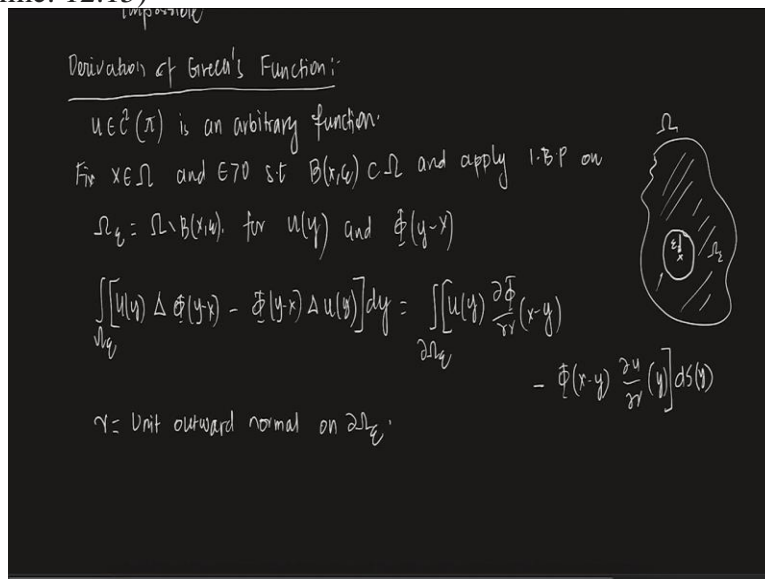 impossible
Derivation of Green's Function:-
u ∈ C²(π) is an arbitrary function.
Fix x∈Ω and ε>0 s.t B(x,ε) ⊂ Ω and apply I.B.P on
Ω_ε = Ω∖B(x,ε). for u(y) and Φ(y-x)
∫_{Ω_ε} [u(y) Δ Φ(y-x) - Φ(y-x) Δ u(y)] dy = ∫_{∂Ω_ε} [u(y) ∂Φ/∂γ (x-y)
- Φ(x-y) ∂u/∂γ (y)] dS(y)
γ = Unit outward normal on ∂Ω_ε.
Ω
ε
x
Ω_ε